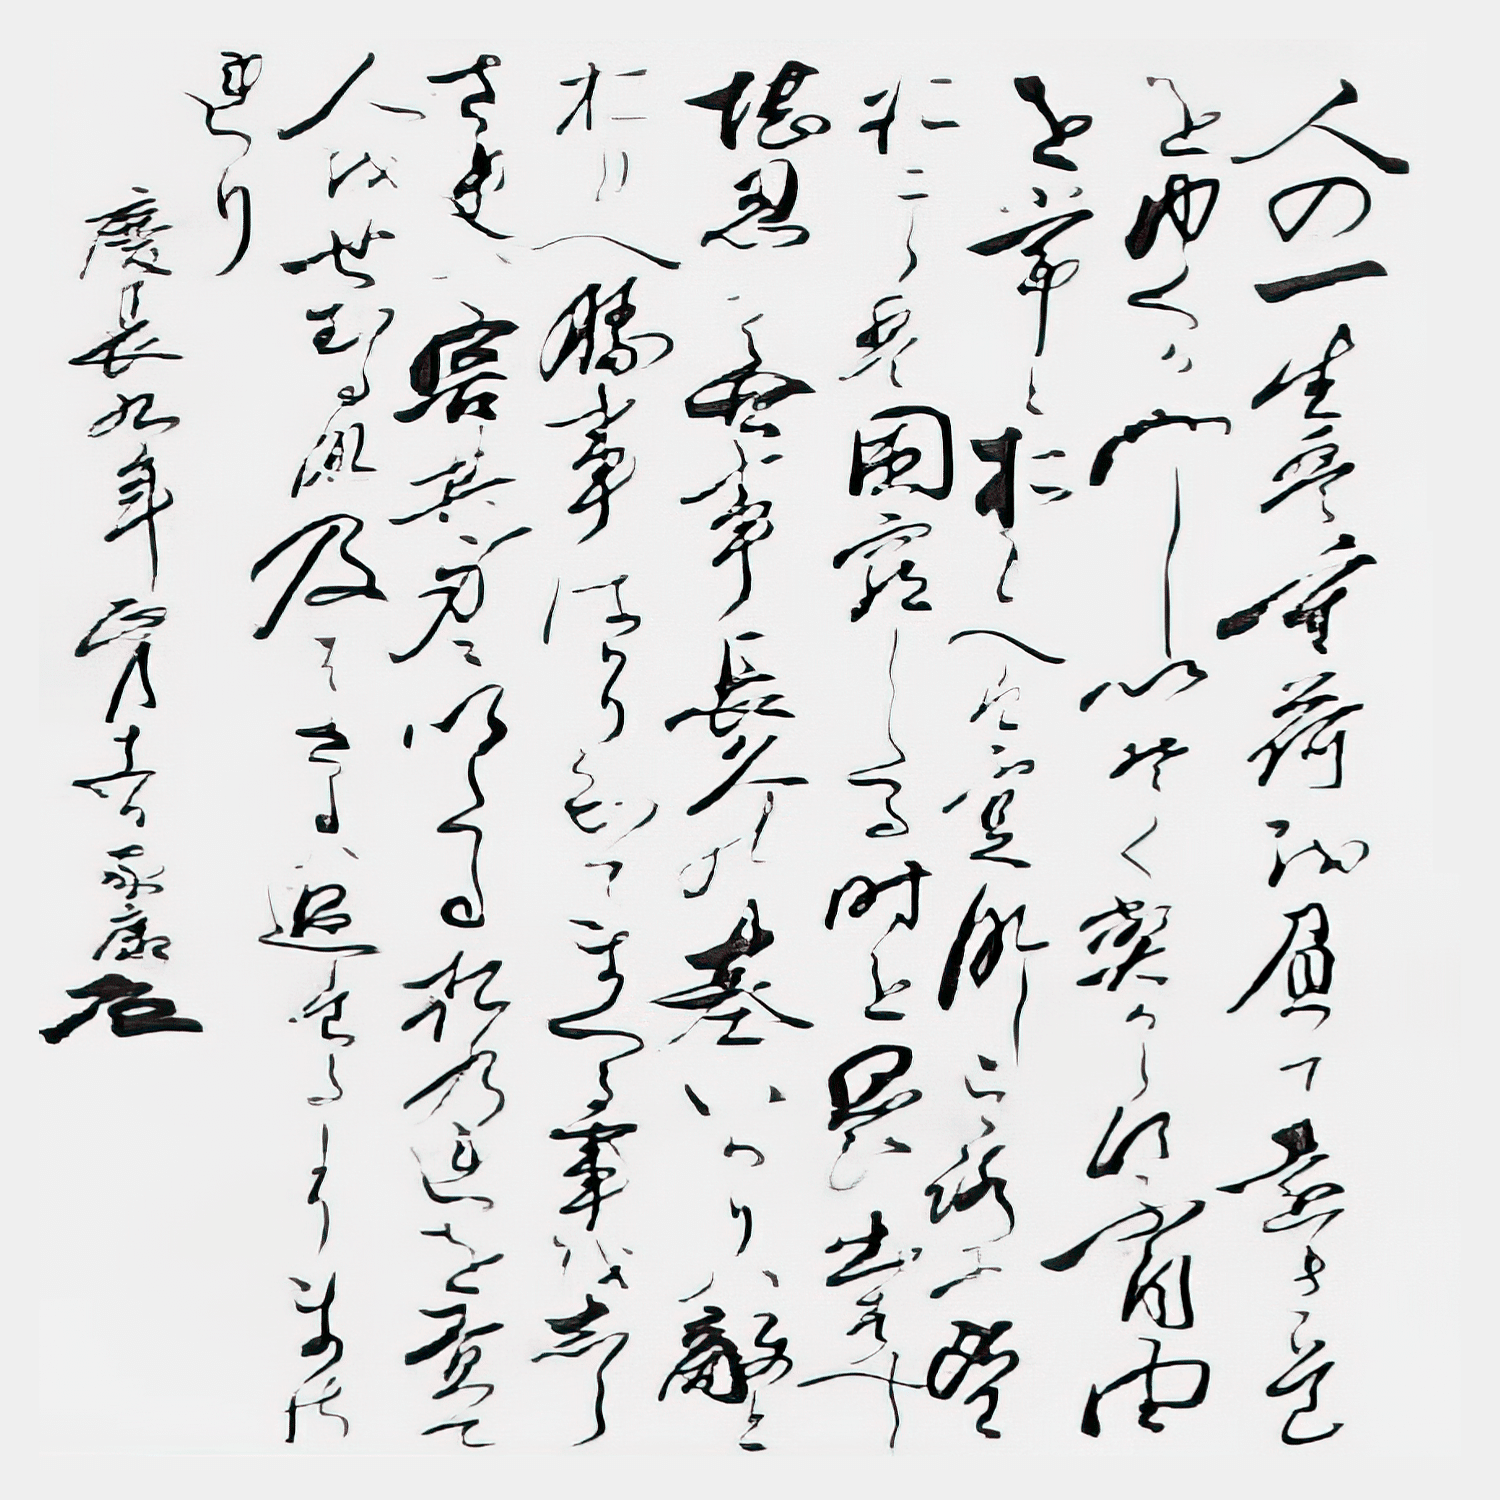 人の一生は重荷を負て遠き道
をゆくか如しいそくへからす不自由
を常とおもへは不足なしこころに望
おこらは困窮したる時を思ひ出すへし
堪忍は無事長久の基いかりは敵と
おもへ勝事はかり知てまくる事をしら
されは害其身にいたるおのれを責て
人をせむるな及はさるは過たるよりまさ
れり
慶長九年正月 家康